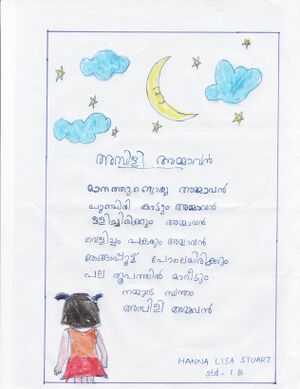 അമ്പിളി അമ്മാവൻ
മാനത്തുണ്ടൊരു അമ്മാവൻ
പുഞ്ചിരി കാട്ടും അമ്മാവൻ
ഒളിച്ചിരിക്കും അമ്മാവൻ
വെളിച്ചം പകരും അമ്മാവൻ
പോലെയിരിക്കും
പല രൂപത്തിൽ മാറീടും
നമ്മുടെ സ്വന്തം
അമ്പിളി അമ്മാവൻ
HANNA LISA STUART
std - 1 B